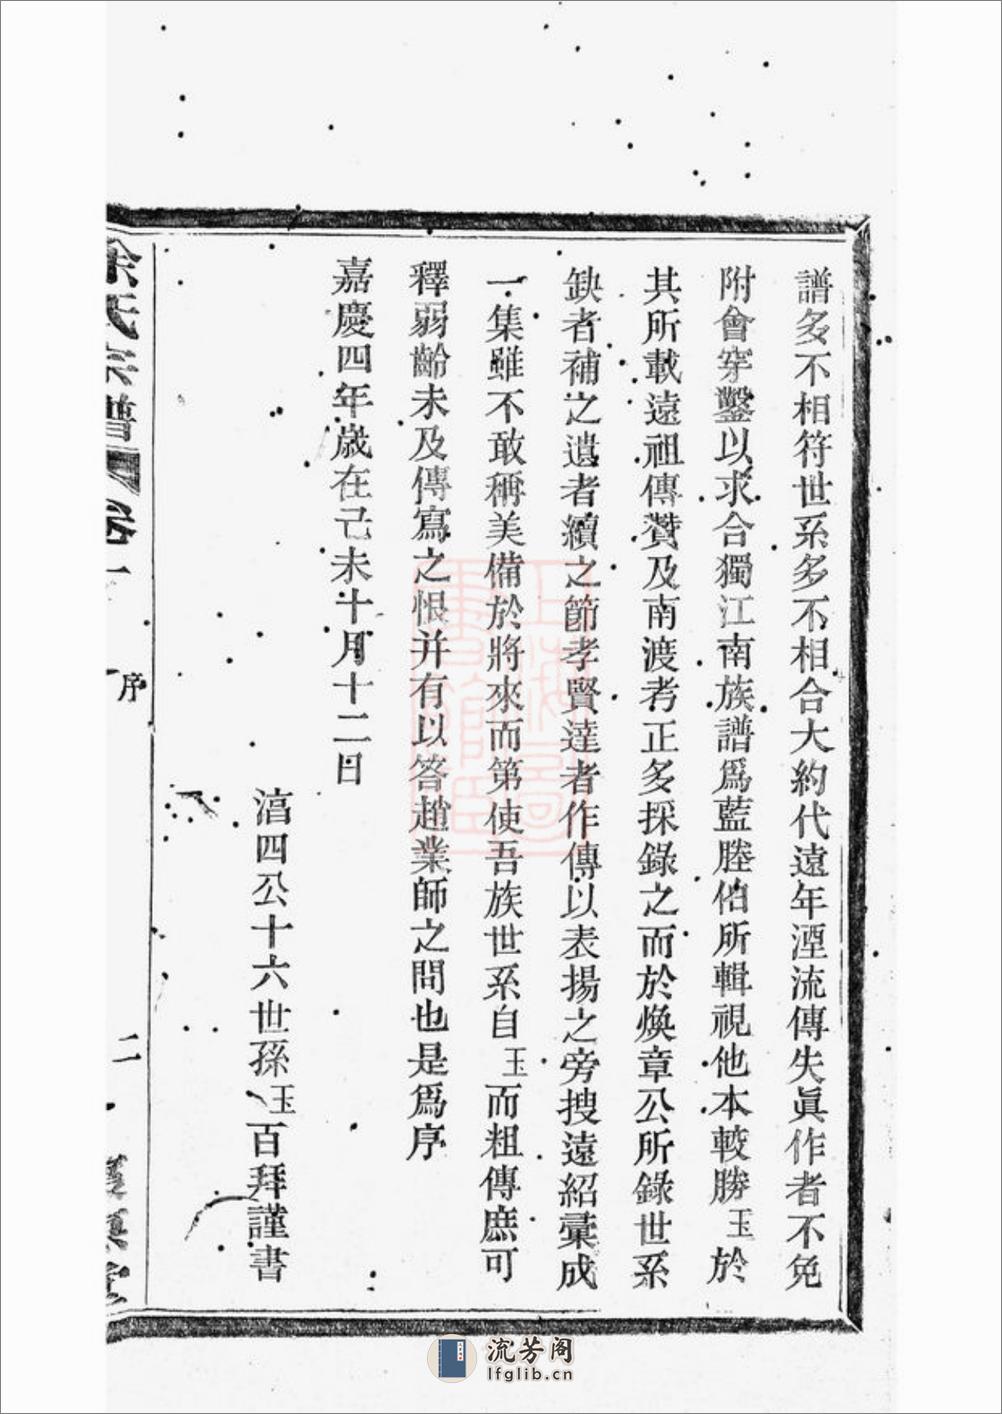 譜多不相符世系多不相合大約代遠年湮流傳失眞作者不免
附會穿鑿以求合獨江南族譜爲藍塍伯所輯視他本較勝玉於
其所載遠祖傳贊及南渡考正多採錄之而於煥章公所錄世系
缺者補之遺者續之節孝賢達者作傳以表揚之旁搜遠紹彙成
一集雖不敢稱美備於將來而第使吾族世系自玉而粗傳庶可
釋弱齡未及傳寫之恨并有以答趙業師之問也是爲序
嘉慶四年歲在己未十月十二日
湻四公十六世孫玉百拜謹書
余氏宗譜
卷一
序
二
上海圖書館藏
流芳阁
lfglib.cn